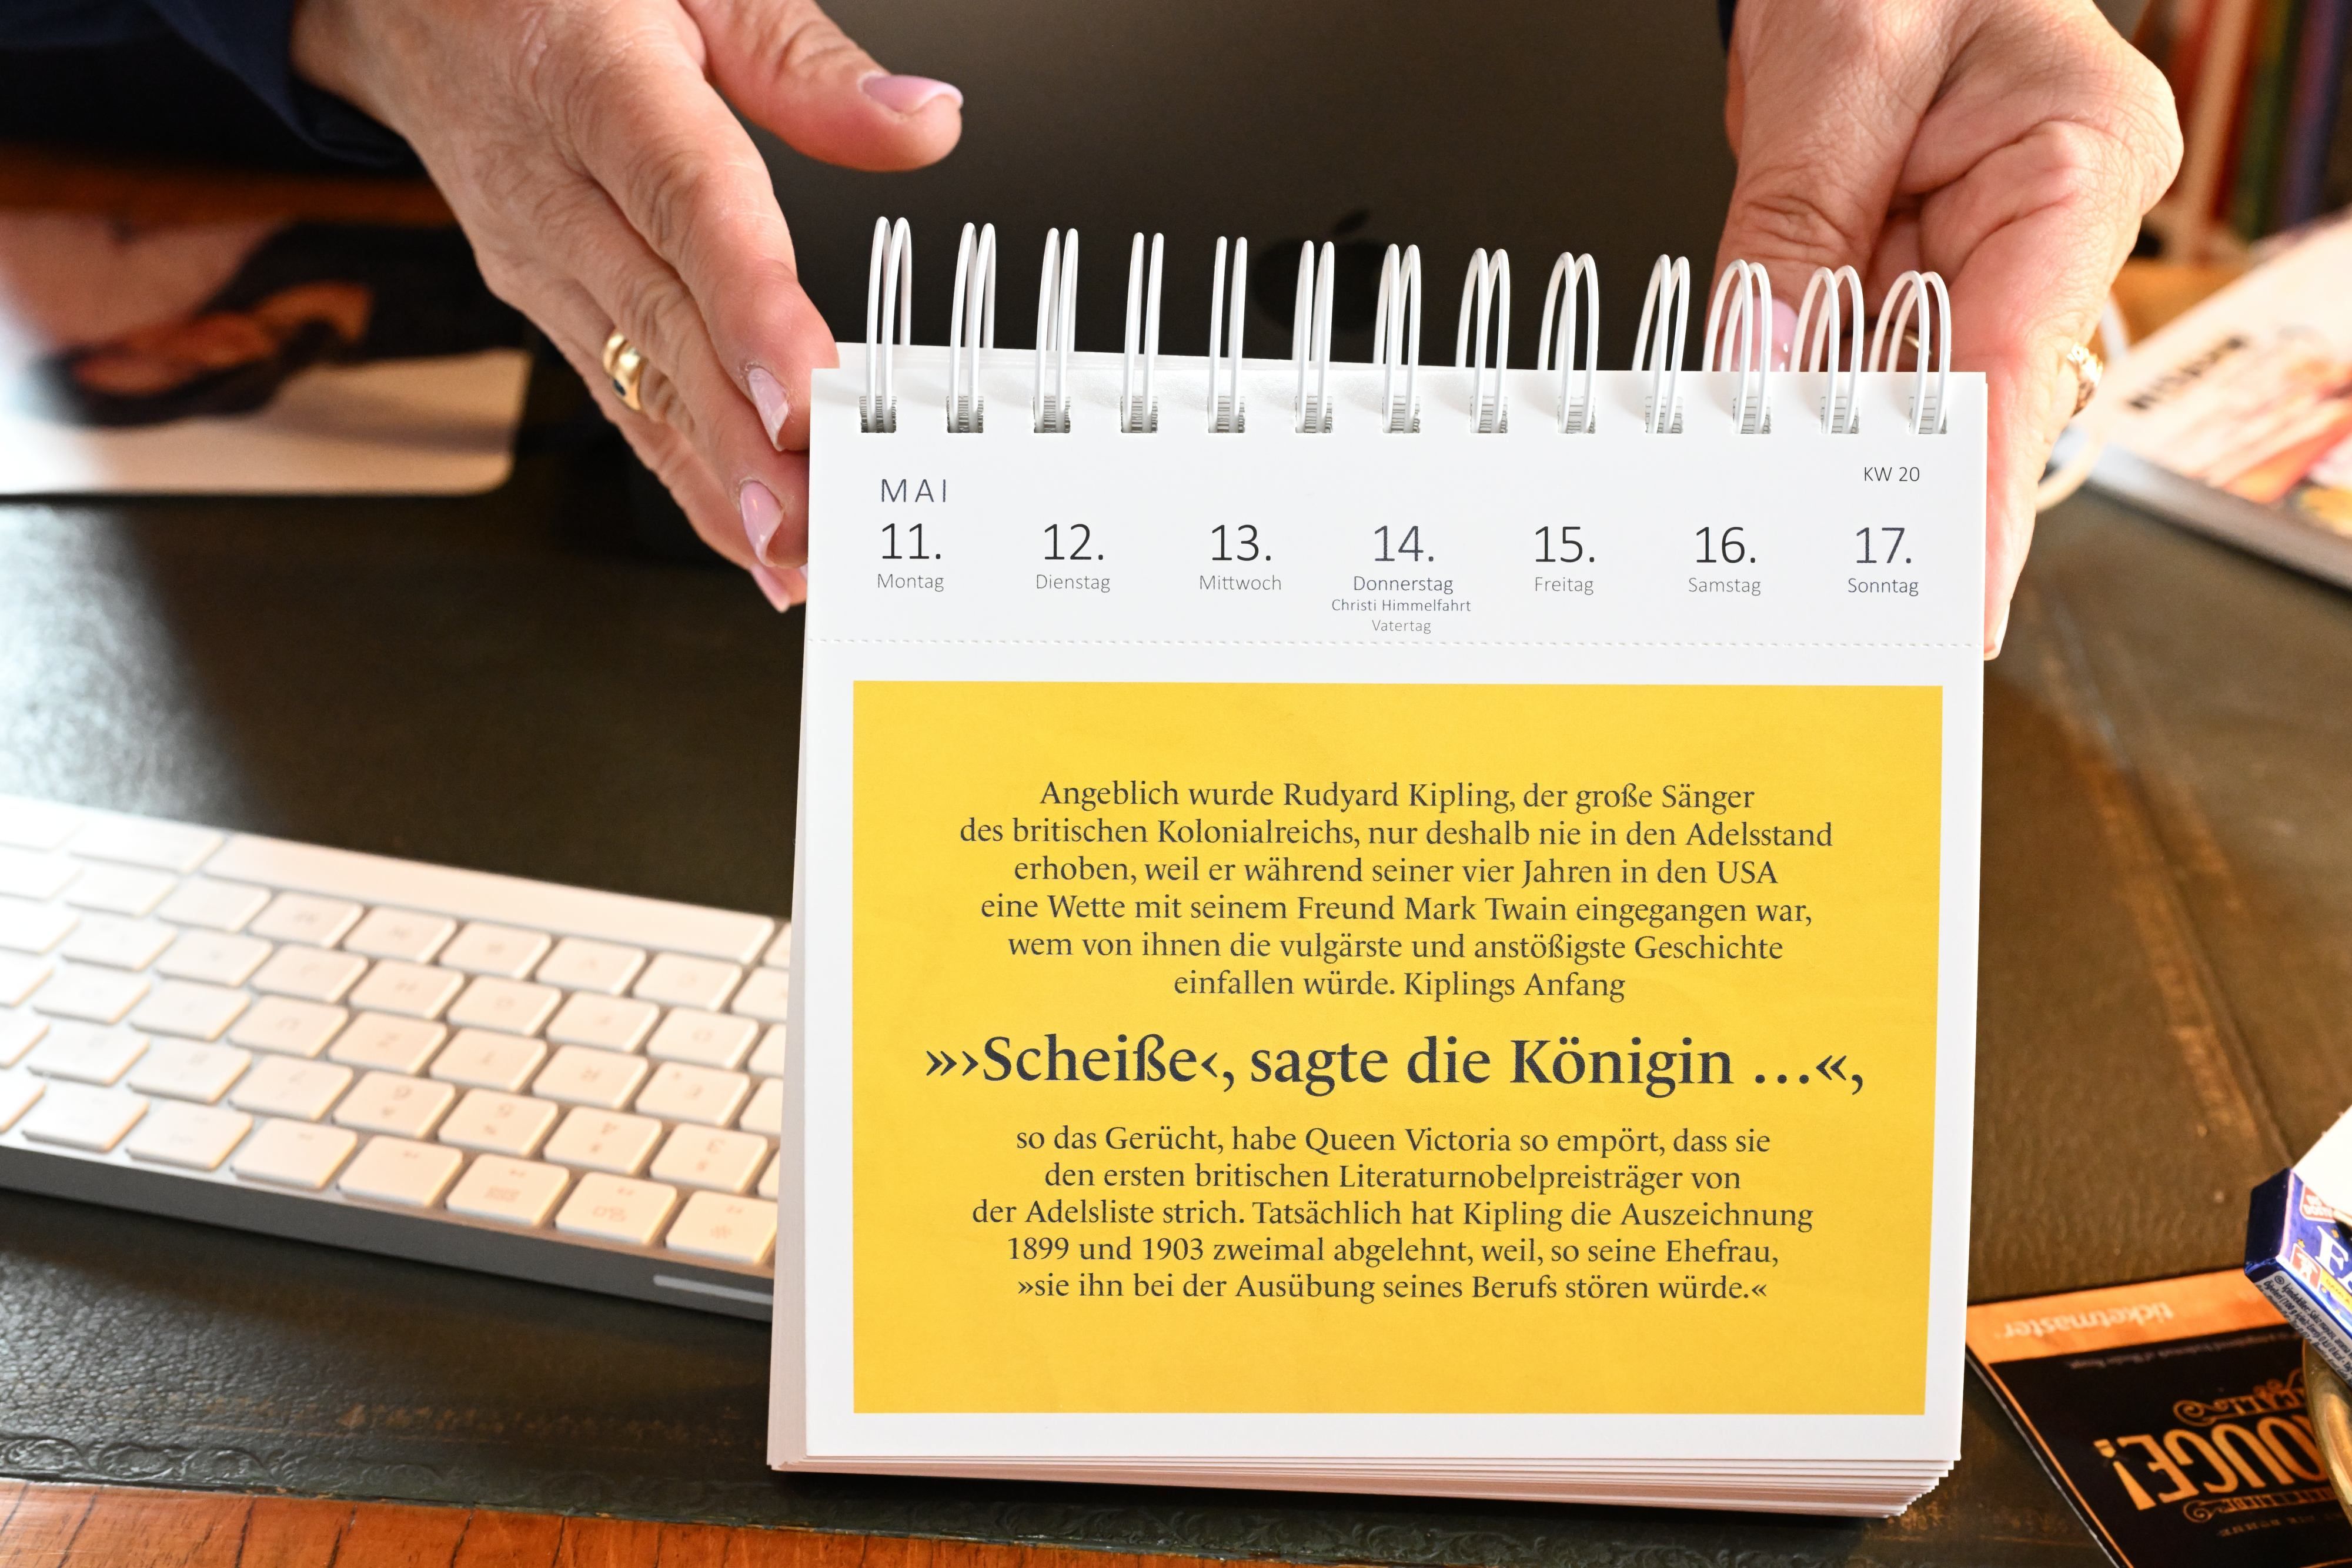 MAI
KW 20
11. 12. 13. 14. 15. 16. 17.
Montag Dienstag Mittwoch Donnerstag Freitag Samstag Sonntag
Christi Himmelfahrt
Vatertag
Angeblich wurde Rudyard Kipling, der große Sänger
des britischen Kolonialreichs, nur deshalb nie in den Adelsstand
erhoben, weil er während seiner vier Jahren in den USA
eine Wette mit seinem Freund Mark Twain eingegangen war,
wem von ihnen die vulgärste und anstößigste Geschichte
einfallen würde. Kiplings Anfang
»›Scheiße‹, sagte die Königin …«,
so das Gerücht, habe Queen Victoria so empört, dass sie
den ersten britischen Literaturnobelpreisträger von
der Adelsliste strich. Tatsächlich hat Kipling die Auszeichnung
1899 und 1903 zweimal abgelehnt, weil, so seine Ehefrau,
»sie ihn bei der Ausübung seines Berufs stören würde.«
ticketmaster